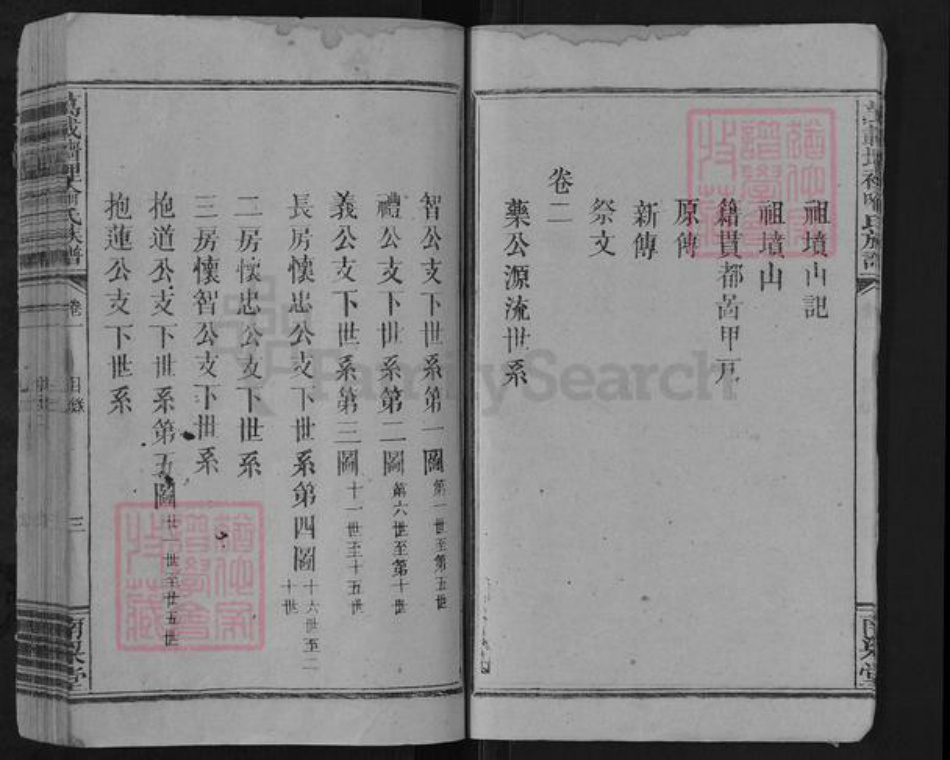 祖墳山記
祖墳山
籍貫都啚甲
原傳
新傳
祭文
卷二
藥公源流世系
智公支下世系第一圖 第一世至第五世
禮公支下世系第二圖 第六世至第十世
義公支下世系第三圖 十一世至十五世
長房懷忠公支下世系第四圖 十六世至二十世
二房懷忠公支下世系
三房懷智公支下世系
抱道公支下世系第五圖 廿一世至廿五世
抱蓮公支下世系
氏族譜
卷一
目錄
三
堂
FamilySearch